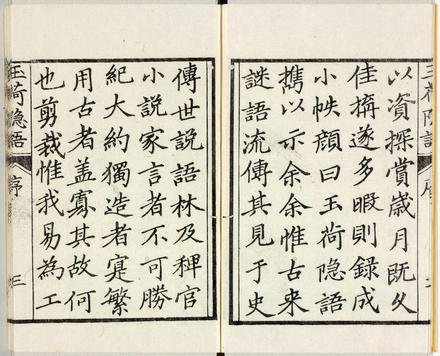 以資探賞歲月既久
佳搆遂多暇則錄成
小帙顏曰玉荷隱語
攜以示余余惟古來
謎語流傳其見于史
傳世說語林及稗官
小說家言者不可勝
紀大約獨造者寔繁
用古者盖寡其故何
也剪裁惟我易為工
玉荷隐語
序
三